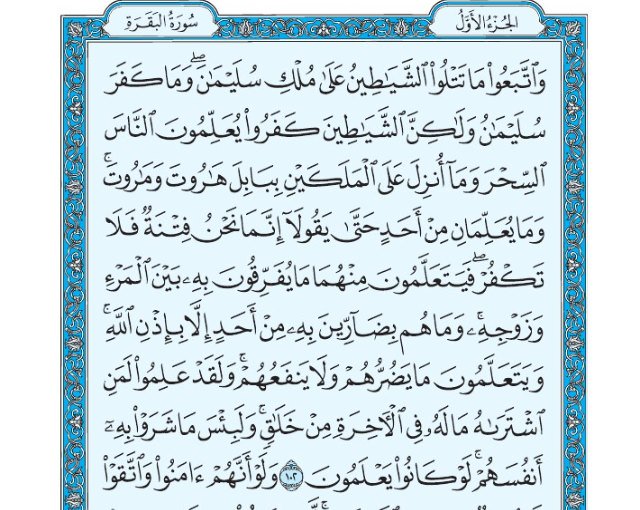 الجُزْءُ الأَوَّلُ
سُورَةُ البَقَرَةِ
وَٱتَّبَعُواْ مَا تَتْلُواْ ٱلشَّيَٰطِينُ عَلَىٰ مُلْكِ سُلَيْمَٰنَۖ وَمَا كَفَرَ
سُلَيْمَٰنُ وَلَٰكِنَّ ٱلشَّيَٰطِينَ كَفَرُواْ يُعَلِّمُونَ ٱلنَّاسَ
ٱلسِّحْرَ وَمَآ أُنزِلَ عَلَى ٱلْمَلَكَيْنِ بِبَابِلَ هَٰرُوتَ وَمَٰرُوتَۚ
وَمَا يُعَلِّمَانِ مِنْ أَحَدٍ حَتَّىٰ يَقُولَآ إِنَّمَا نَحْنُ فِتْنَةٌ فَلَا
تَكْفُرْۖ فَيَتَعَلَّمُونَ مِنْهُمَا مَا يُفَرِّقُونَ بِهِۦ بَيْنَ ٱلْمَرْءِ
وَزَوْجِهِۦۚ وَمَا هُم بِضَآرِّينَ بِهِۦ مِنْ أَحَدٍ إِلَّا بِإِذْنِ ٱللَّهِۚ
وَيَتَعَلَّمُونَ مَا يَضُرُّهُمْ وَلَا يَنفَعُهُمْۚ وَلَقَدْ عَلِمُواْ لَمَنِ
ٱشْتَرَىٰهُ مَا لَهُۥ فِي ٱلْءَاخِرَةِ مِنْ خَلَٰقٍۚ وَلَبِئْسَ مَا شَرَوْاْ بِهِۦٓ
أَنفُسَهُمْۚ لَوْ كَانُواْ يَعْلَمُونَ ١٠٢ وَلَوْ أَنَّهُمْ ءَامَنُواْ وَٱتَّقَوْاْ